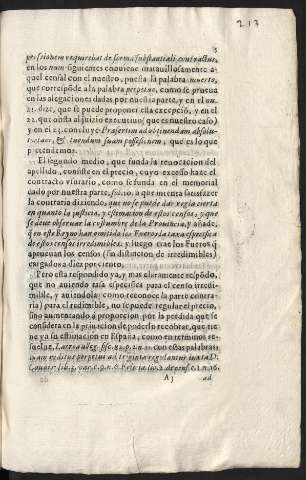 213
3
positionem requirebat de forma substantiali contractus,
en los num. siguientes conuiene marauillosamente a-
quel censal con el nuestro, puesta la palabra muerto,
que corresponde a la palabra perpetuo, como se prueua
en las alegaciones dadas por nuestra parte, y en el nu.
21. dize, que se puede proponer esta excepció, y en el
22. que obsta al juizio executiuo (que es nuestro caso)
y en el 23. concluye. Præsertim ad obtinendam absolu-
tionem, & tuendum suam possessionem, que es lo que
pretendemos.
El segundo medio, que funda la reuocacion del
apellido, consiste en el precio, cuyo excesso haze el
contracto vsurario, como se funda en el memorial
dado por nuestra parte, fol. 10. a que intenta satisfazer
la contraria diziendo, que no se puede dar regla cierta
en quanto la justicia, y estimacion de estos censos, y que
se deue obseruar la costumbre de la Prouincia, y añade,
q̃ en este Reyno han omitido los Fueros la taxa especifica
de estos censos irredimibles, y luego trae los Fueros q̃
aprueuan los censos (sin distincion de irredimibles)
cargados a diez por ciento.
Pero esta respondido ya, y mas claramente respódo,
que no auiendo tasa especifica para el censo irredi-
mible, y auiendola (como reconoce la parte contra-
ria) para el redimible, no se puede regular el precio,
sino aumentando a proporcion por la perdida que se
considera en la priuacion de poderlo recobrar, que tie-
ne ya su estimacion en España, como en terminos re-
suelue,
A3
ad